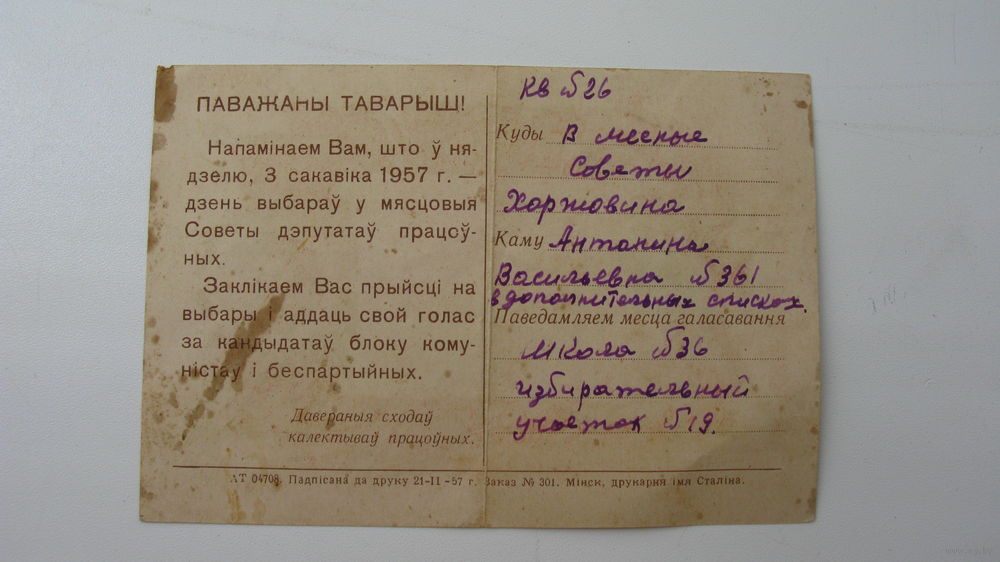 ПАВАЖАНЫ ТАВАРЫШ!
Напамінаем Вам, што ў ня-
дзелю, 3 сакавіка 1957 г. —
дзень выбараў у мясцовыя
Советы дэпутатаў працоў-
ных.
Заклікаем Вас прыйсці на
выбары і аддаць свой голас
за кандыдатаў блоку кому-
ністаў і беспартыйных.
Давераныя сходаў
калектываў працоўных.
кв №26
Куды В месные
Советы
Хоржовина
Каму Антанина
Васильевна №361
в дополнительных списках.
Паведамляем месца галасавання
Школа №36
избирательный
участок №19.
АТ 04708. Падпісана да друку 21-II-57 г. Заказ № 301. Мінск, друкарня імя Сталіна.